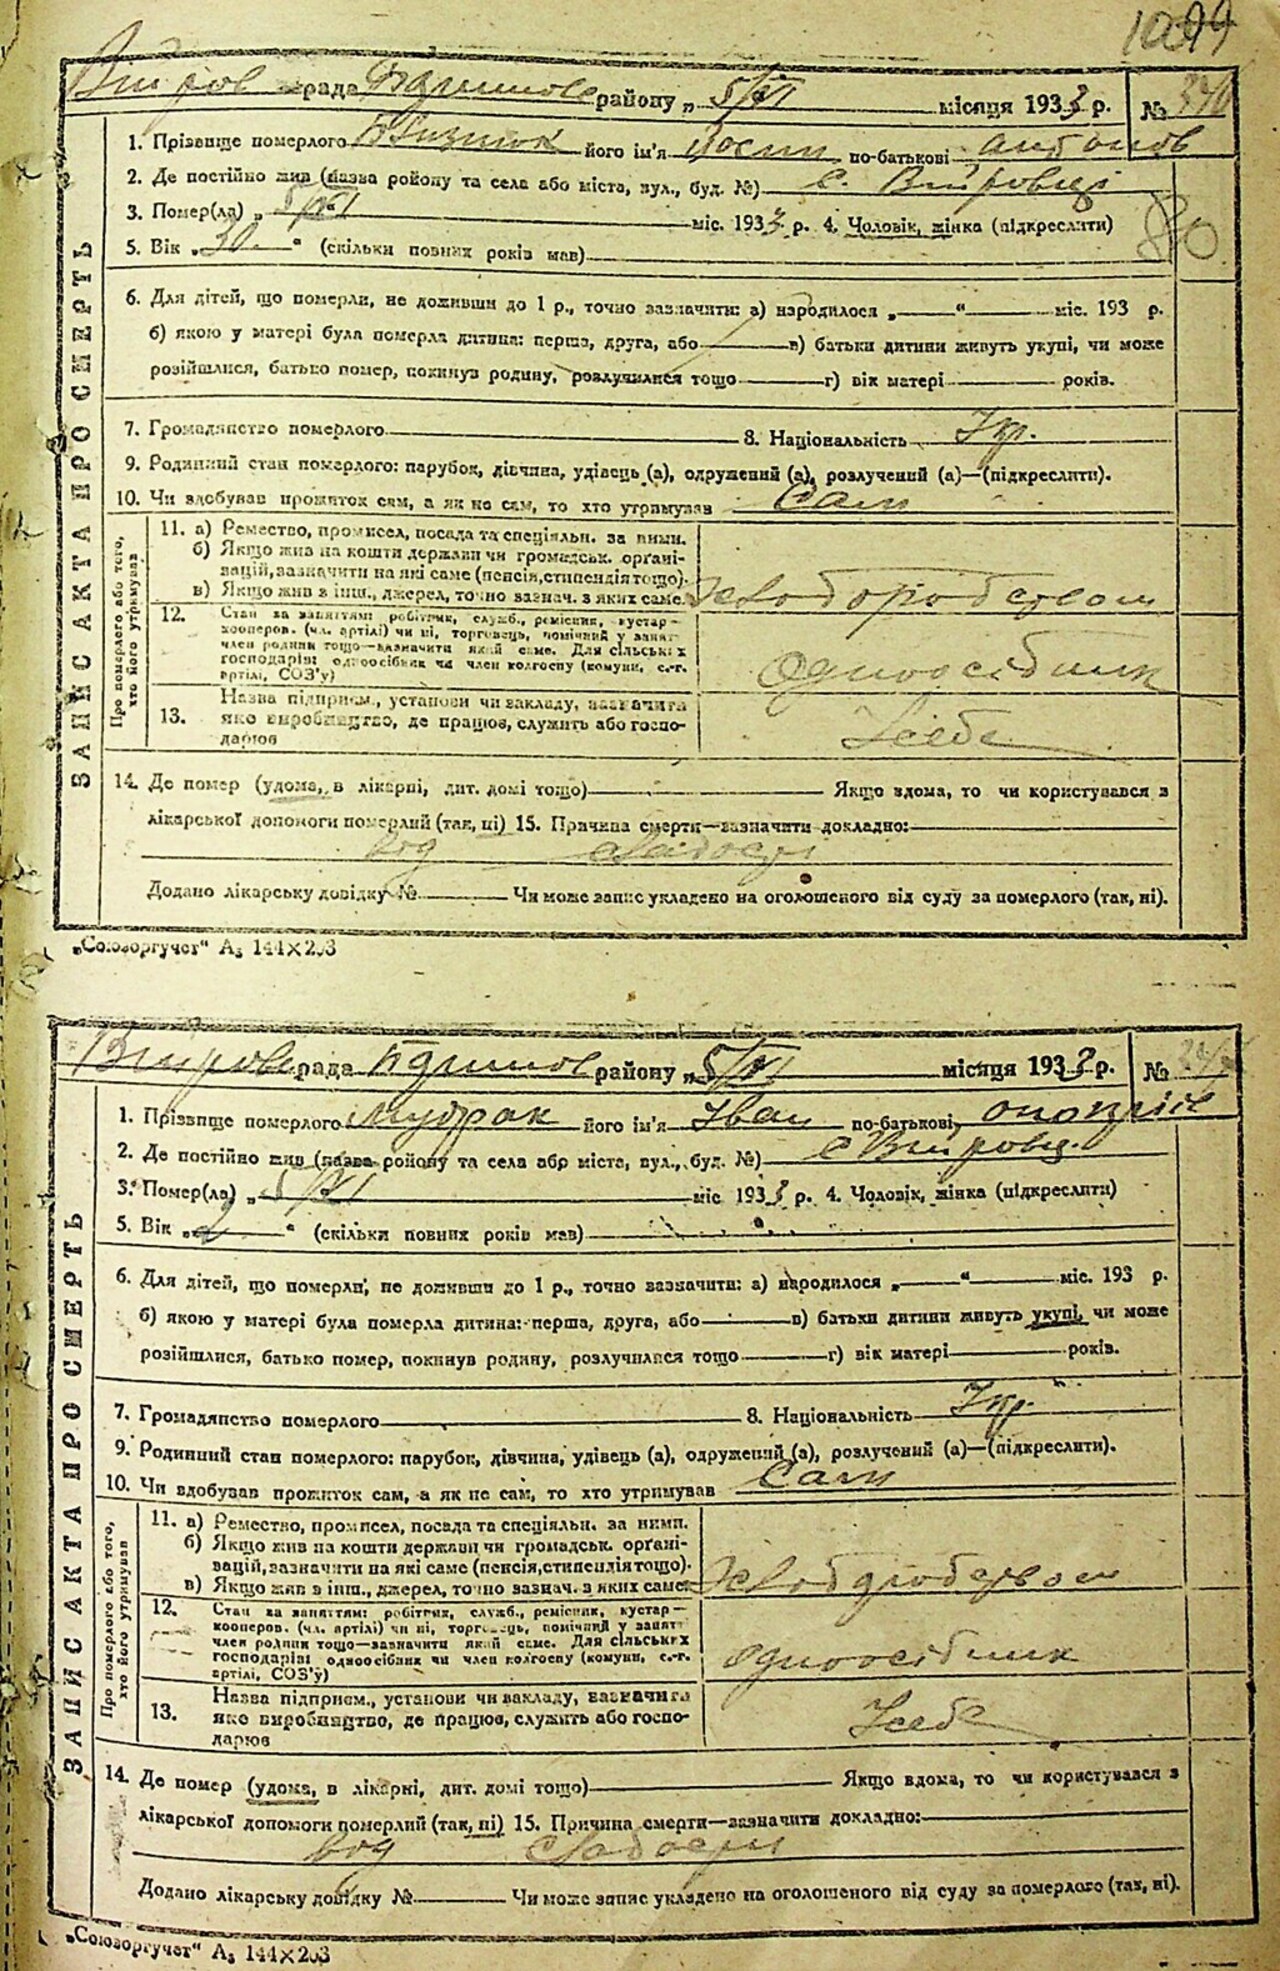 рада району „ 5/VI місяця 1933 р. №
1. Прізвище померлого його ім'я по-батькові Антонов
2. Де постійно жив (назва району та села або міста, вул., буд. №) с. Війтівці
3. Помер(ла) „ 5/VI міс. 1933 р. 4. Чоловік, жінка (підкреслити)
5. Вік „ 30 “ (скільки повних років мав)
80
6. Для дітей, що померли, не доживши до 1 р., точно зазначити: а) народилося „ “ міс. 193 р.
б) якою у матері була померла дитина: перша, друга, або в) батьки дитини живуть укупі, чи може
розійшлися, батько помер, покинув родину, розлучилися тощо г) вік матері років.
7. Громадянство померлого 8. Національність Укр.
9. Родинний стан померлого: парубок, дівчина, удівець (а), одружений (а), розлучений (а)—(підкреслити).
10. Чи здобував прожиток сам, а як не сам, то хто утримував Сам
ЗАПИС АКТА ПРО СМЕРТЬ
Про померлого або того, хто його утримував
11. а) Ремество, промисел, посада та спеціяльн. за ними.
б) Якщо жив на кошти держави чи громадськ. орґані-
зацій, зазначити на які саме (пенсія, стипендія тощо).
в) Якщо жив з інш., джерел, точно зазнач. з яких саме. Хлібороб
12. Стан за заняттям: робітник, служб., ремісник, кустар—
кооперов. (чл. артілі) чи ні, торговець, помічний у занят.
член родини тощо—зазначити який саме. Для сільських
господарів: одноосібник чи член колгоспу (комуни, с.-г.
артілі, СОЗ'у) Одноосібник
13. Назва підприєм., установи чи закладу, зазначити
яке виробництво, де працюв, служить або госпо-
дарюв У себе
14. Де помер (удома, в лікарні, дит. домі тощо) Якщо вдома, то чи користувався з
лікарської допомоги померлий (так, ні) 15. Причина смерти—зазначити докладно:
від слабости
Додано лікарську довідку № Чи може запис укладено на оголошеного від суду за померлого (так, ні).
„Союзоргучет“ А₅ 144×203
рада району „ 5/VI місяця 1933 р. №
1. Прізвище померлого Мудрак його ім'я Іван по-батькові
2. Де постійно жив (назва району та села або міста, вул., буд. №) с Війтівці
3. Помер(ла) „ 5/VI міс. 1933 р. 4. Чоловік, жінка (підкреслити)
5. Вік „ 2 “ (скільки повних років мав)
6. Для дітей, що померли, не доживши до 1 р., точно зазначити: а) народилося „ “ міс. 193 р.
б) якою у матері була померла дитина: перша, друга, або в) батьки дитини живуть укупі, чи може
розійшлися, батько помер, покинув родину, розлучилися тощо г) вік матері років.
7. Громадянство померлого 8. Національність Укр.
9. Родинний стан померлого: парубок, дівчина, удівець (а), одружений (а), розлучений (а)—(підкреслити).
10. Чи здобував прожиток сам, а як не сам, то хто утримував Сам
ЗАПИС АКТА ПРО СМЕРТЬ
Про померлого або того, хто його утримував
11. а) Ремество, промисел, посада та спеціяльн. за ними.
б) Якщо жив на кошти держави чи громадськ. орґані-
зацій, зазначити на які саме (пенсія, стипендія тощо).
в) Якщо жив з інш., джерел, точно зазнач. з яких саме.
12. Стан за заняттям: робітник, служб., ремісник, кустар—
кооперов. (чл. артілі) чи ні, торговець, помічний у занят.
член родини тощо—зазначити який саме. Для сільських
господарів: одноосібник чи член колгоспу (комуни, с.-г.
артілі, СОЗ'у) одноосібник
13. Назва підприєм., установи чи закладу, зазначити
яке виробництво, де працюв, служить або госпо-
дарюв У себе
14. Де помер (удома, в лікарні, дит. домі тощо) Якщо вдома, то чи користувався з
лікарської допомоги померлий (так, ні) 15. Причина смерти—зазначити докладно:
від слабости
Додано лікарську довідку № Чи може запис укладено на оголошеного від суду за померлого (так, ні).
„Союзоргучет“ А₅ 144×203